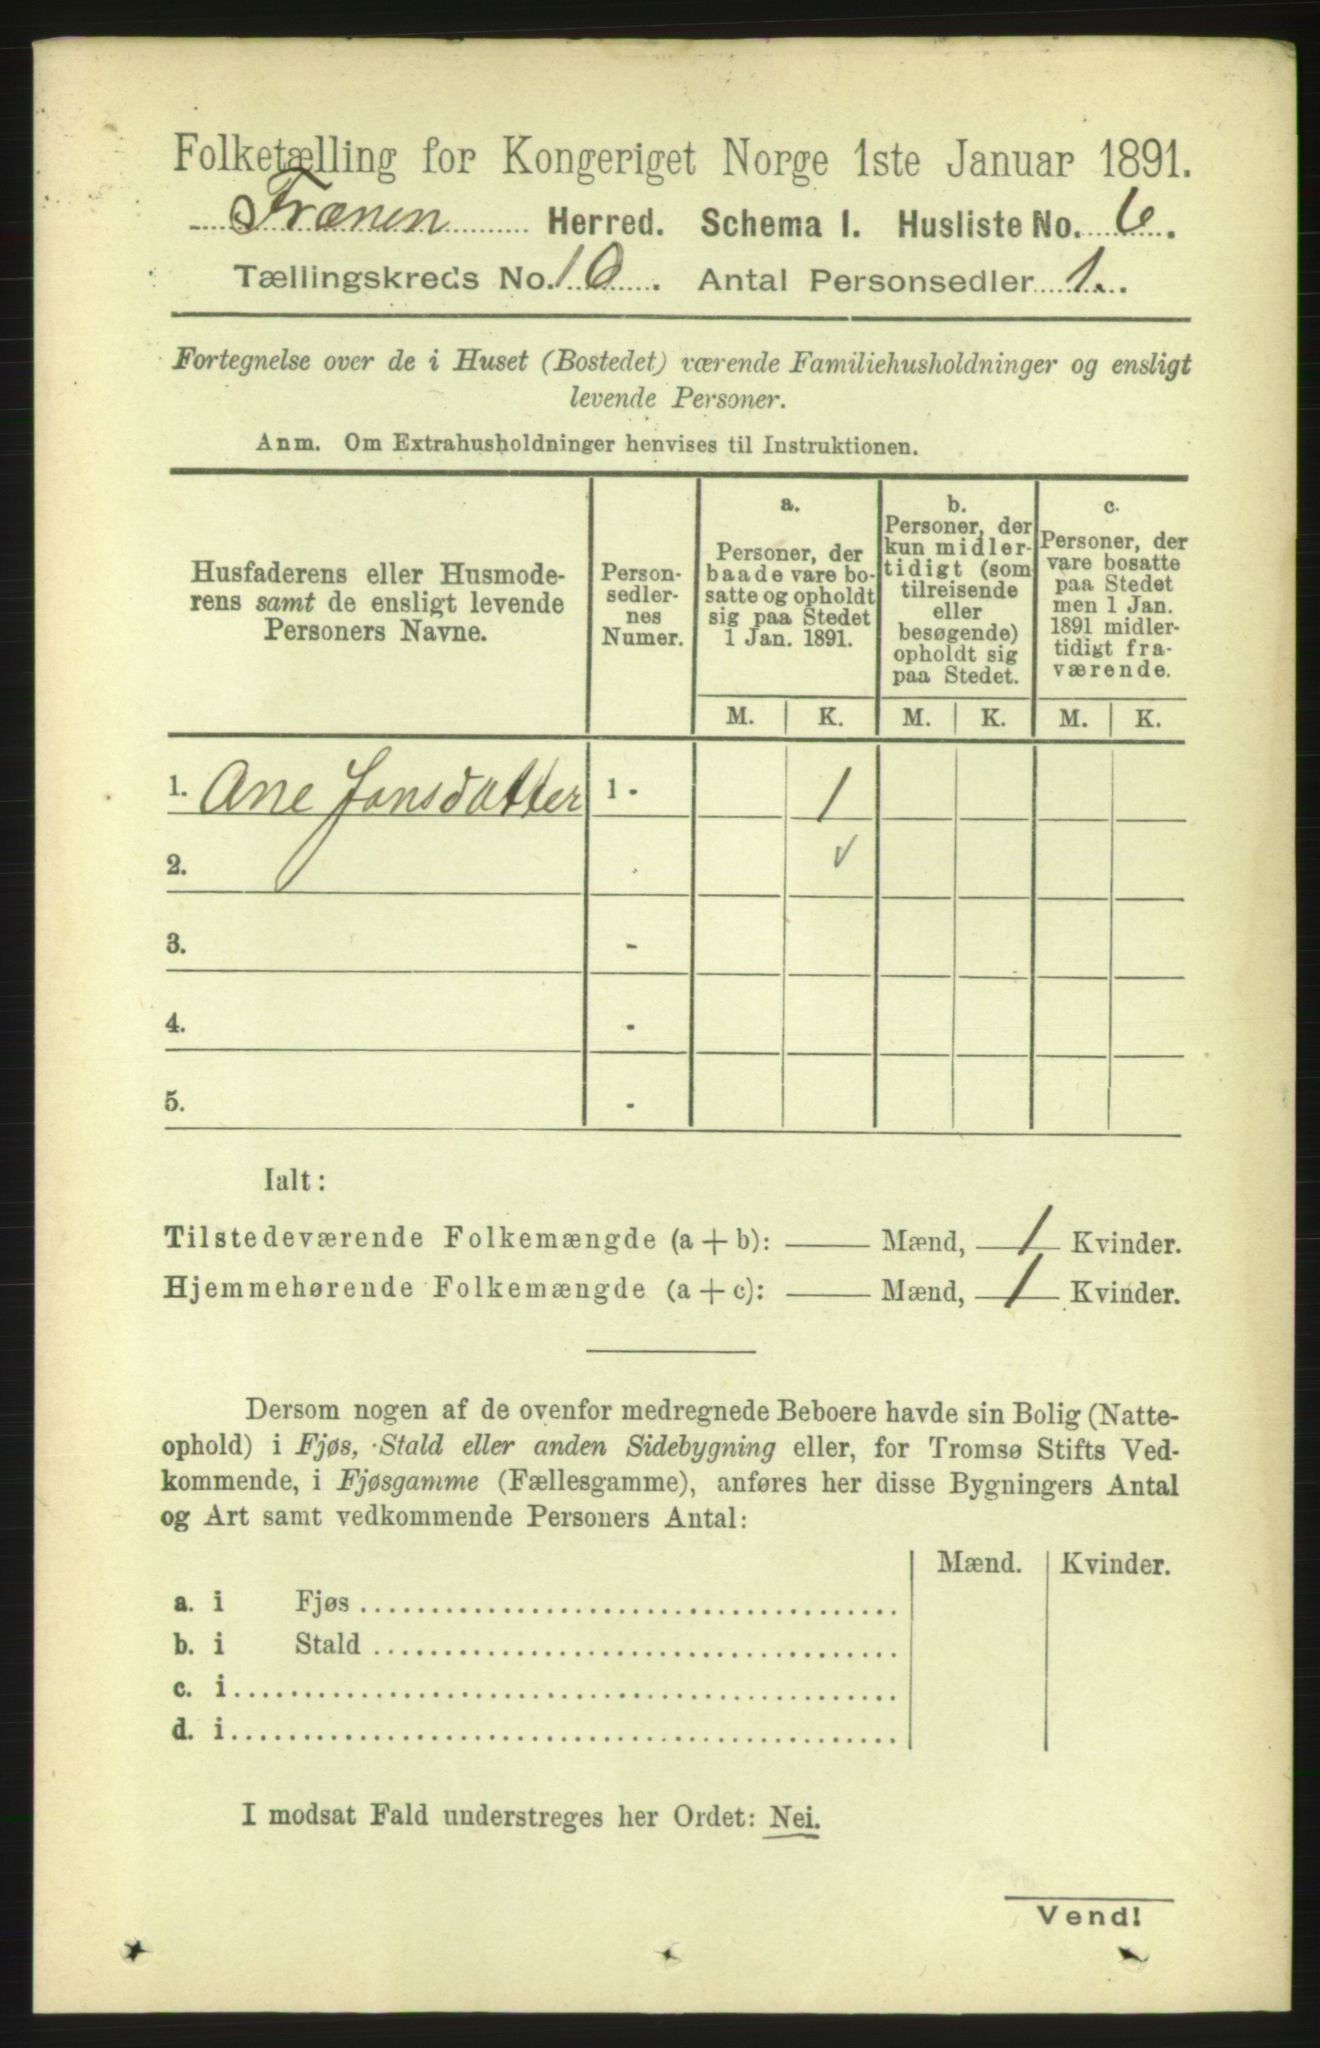 Folketælling for Kongeriget Norge 1ste Januar 1891.
Frænen Herred. Schema I. Husliste No. 6.
Tællingskreds No. 10. Antal Personsedler 1.
Fortegnelse over de i Huset (Bostedet) værende Familiehusholdninger og ensligt
levende Personer.
Anm. Om Extrahusholdninger henvises til Instruktionen.
Husfaderens eller Husmode-
rens samt de ensligt levende
Personers Navne.
Person-
sedler-
nes
Numer.
a.
Personer, der
baade vare bo-
satte og opholdt
sig paa Stedet
1 Jan. 1891.
b.
Personer, der
kun midler-
tidigt (som
tilreisende
eller
besøgende)
opholdt sig
paa Stedet.
c.
Personer, der
vare bosatte
paa Stedet
men 1 Jan.
1891 midler-
tidigt fra-
værende.
M. K. M. K. M. K.
1. Ane Jonsdatter 1 - 1
2. - ✓
3. -
4. -
5. -
Ialt:
Tilstedeværende Folkemængde (a + b): —— Mænd, 1 Kvinder.
Hjemmehørende Folkemængde (a + c): —— Mænd, 1 Kvinder.
Dersom nogen af de ovenfor medregnede Beboere havde sin Bolig (Natte-
ophold) i Fjøs, Stald eller anden Sidebygning eller, for Tromsø Stifts Ved-
kommende, i Fjøsgamme (Fællesgamme), anføres her disse Bygningers Antal
og Art samt vedkommende Personers Antal:
Mænd. Kvinder.
a. i Fjøs
b. i Stald
c. i
d. i
I modsat Fald understreges her Ordet: Nei.
Vend!